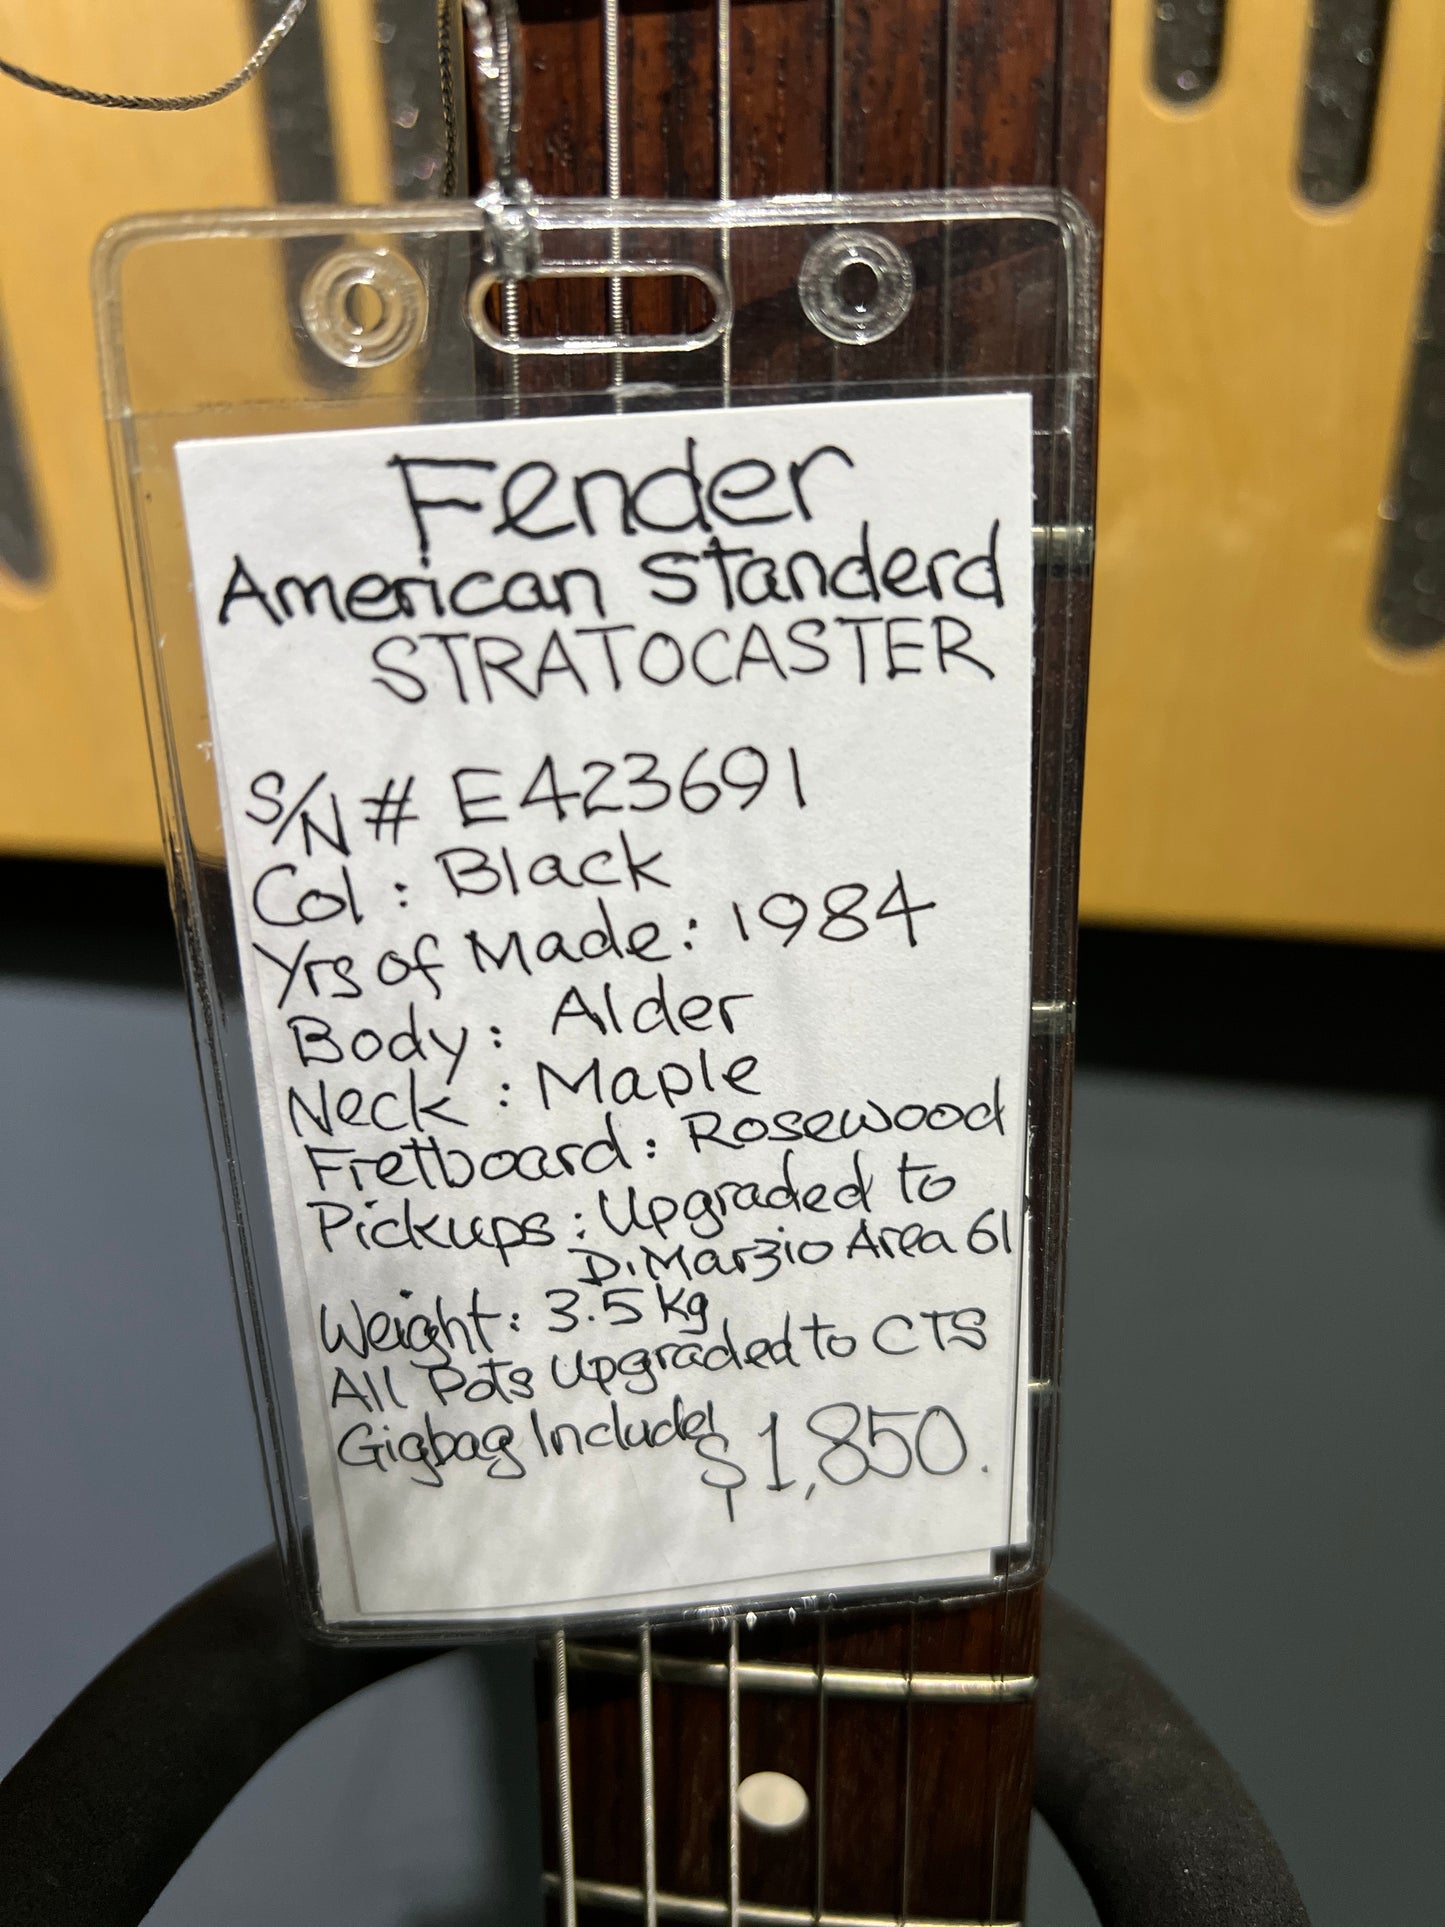 Fender
American Standerd
STRATOCASTER
S/N # E423691
Col : Black
Yrs of Made : 1984
Body : Alder
Neck : Maple
Fretboard : Rosewood
Pickups : Upgraded to
DiMarzio Area 61
Weight : 3.5 kg
All Pots Upgraded to CTS
Gigbag Included
$1,850.